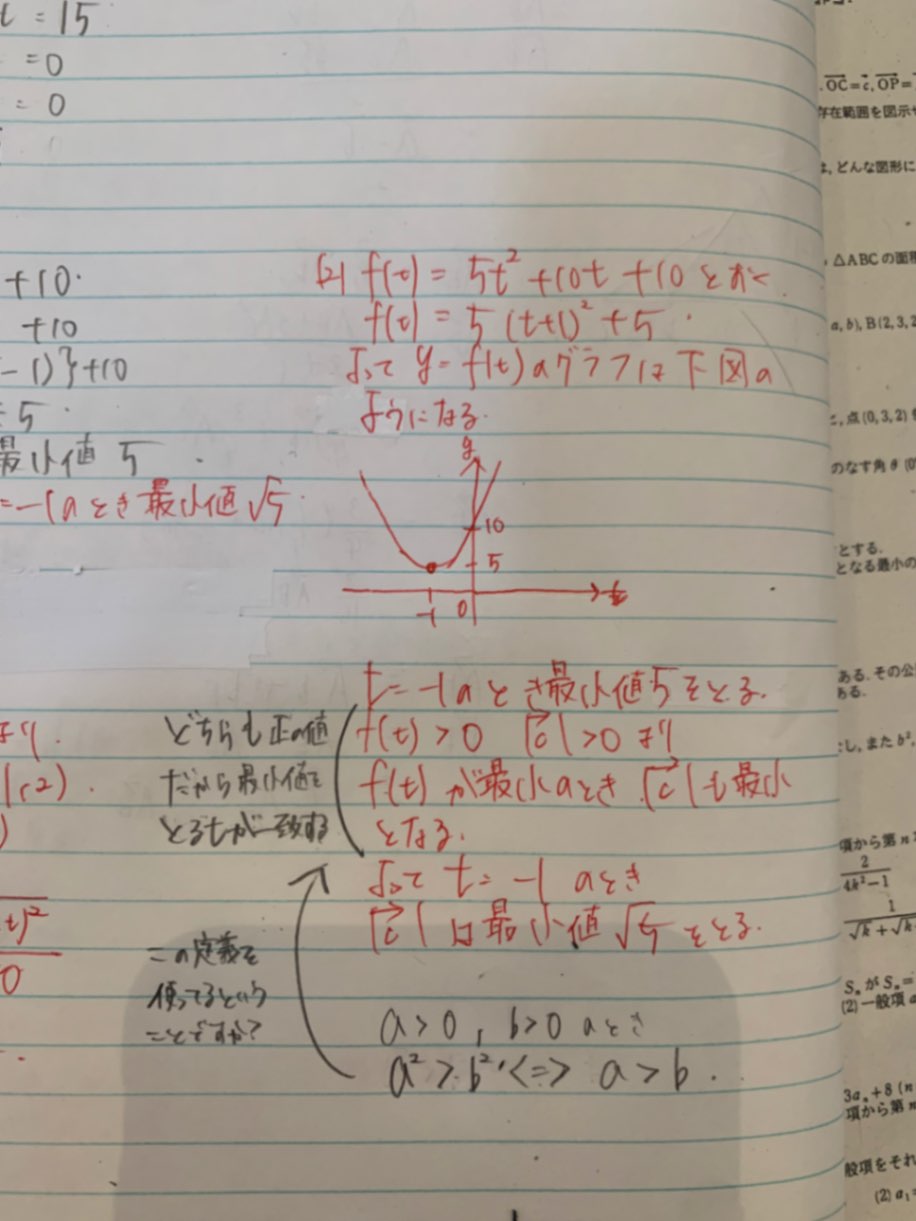 t = 15
= 0
= 0
+10.
+10
-1)}+10
= 5.
最小値 5.
=-1のとき最小値√5.
(2) f(t) = 5t²+10t+10とおく.
f(t) = 5(t+1)²+5.
よって y=f(t)のグラフは下図の
ようになる.
y
10
5
-1 0 t
t=-1のとき最小値5をとる.
f(t)>0 |c→|>0 より
f(t)が最小のとき, |c→|も最小
となる.
よって t=-1 のとき
|c→|は最小値√5をとる.
どちらも正の値
だから最小値を
とるtが一致する
この定義を
使ってるという
ことですか?
a>0, b>0 のとき
a²>b² <=> a>b.
より.
t)²
0
OC=c, OP=
存在範囲を図示せ
は, どんな図形に
, △ABCの面積
a, b), B(2, 3, 2
と, 点(0, 3, 2)を
のなす角θ(0°
とする.
となる最小の
ある. その公
ある.
し, また b²,
項から第n
2
4k²-1
1
√k+√k
Sₙが Sₙ=
(2) 一般項 a
3aₙ+8 (n
項から第n
般項をそれ
(2) a₁=